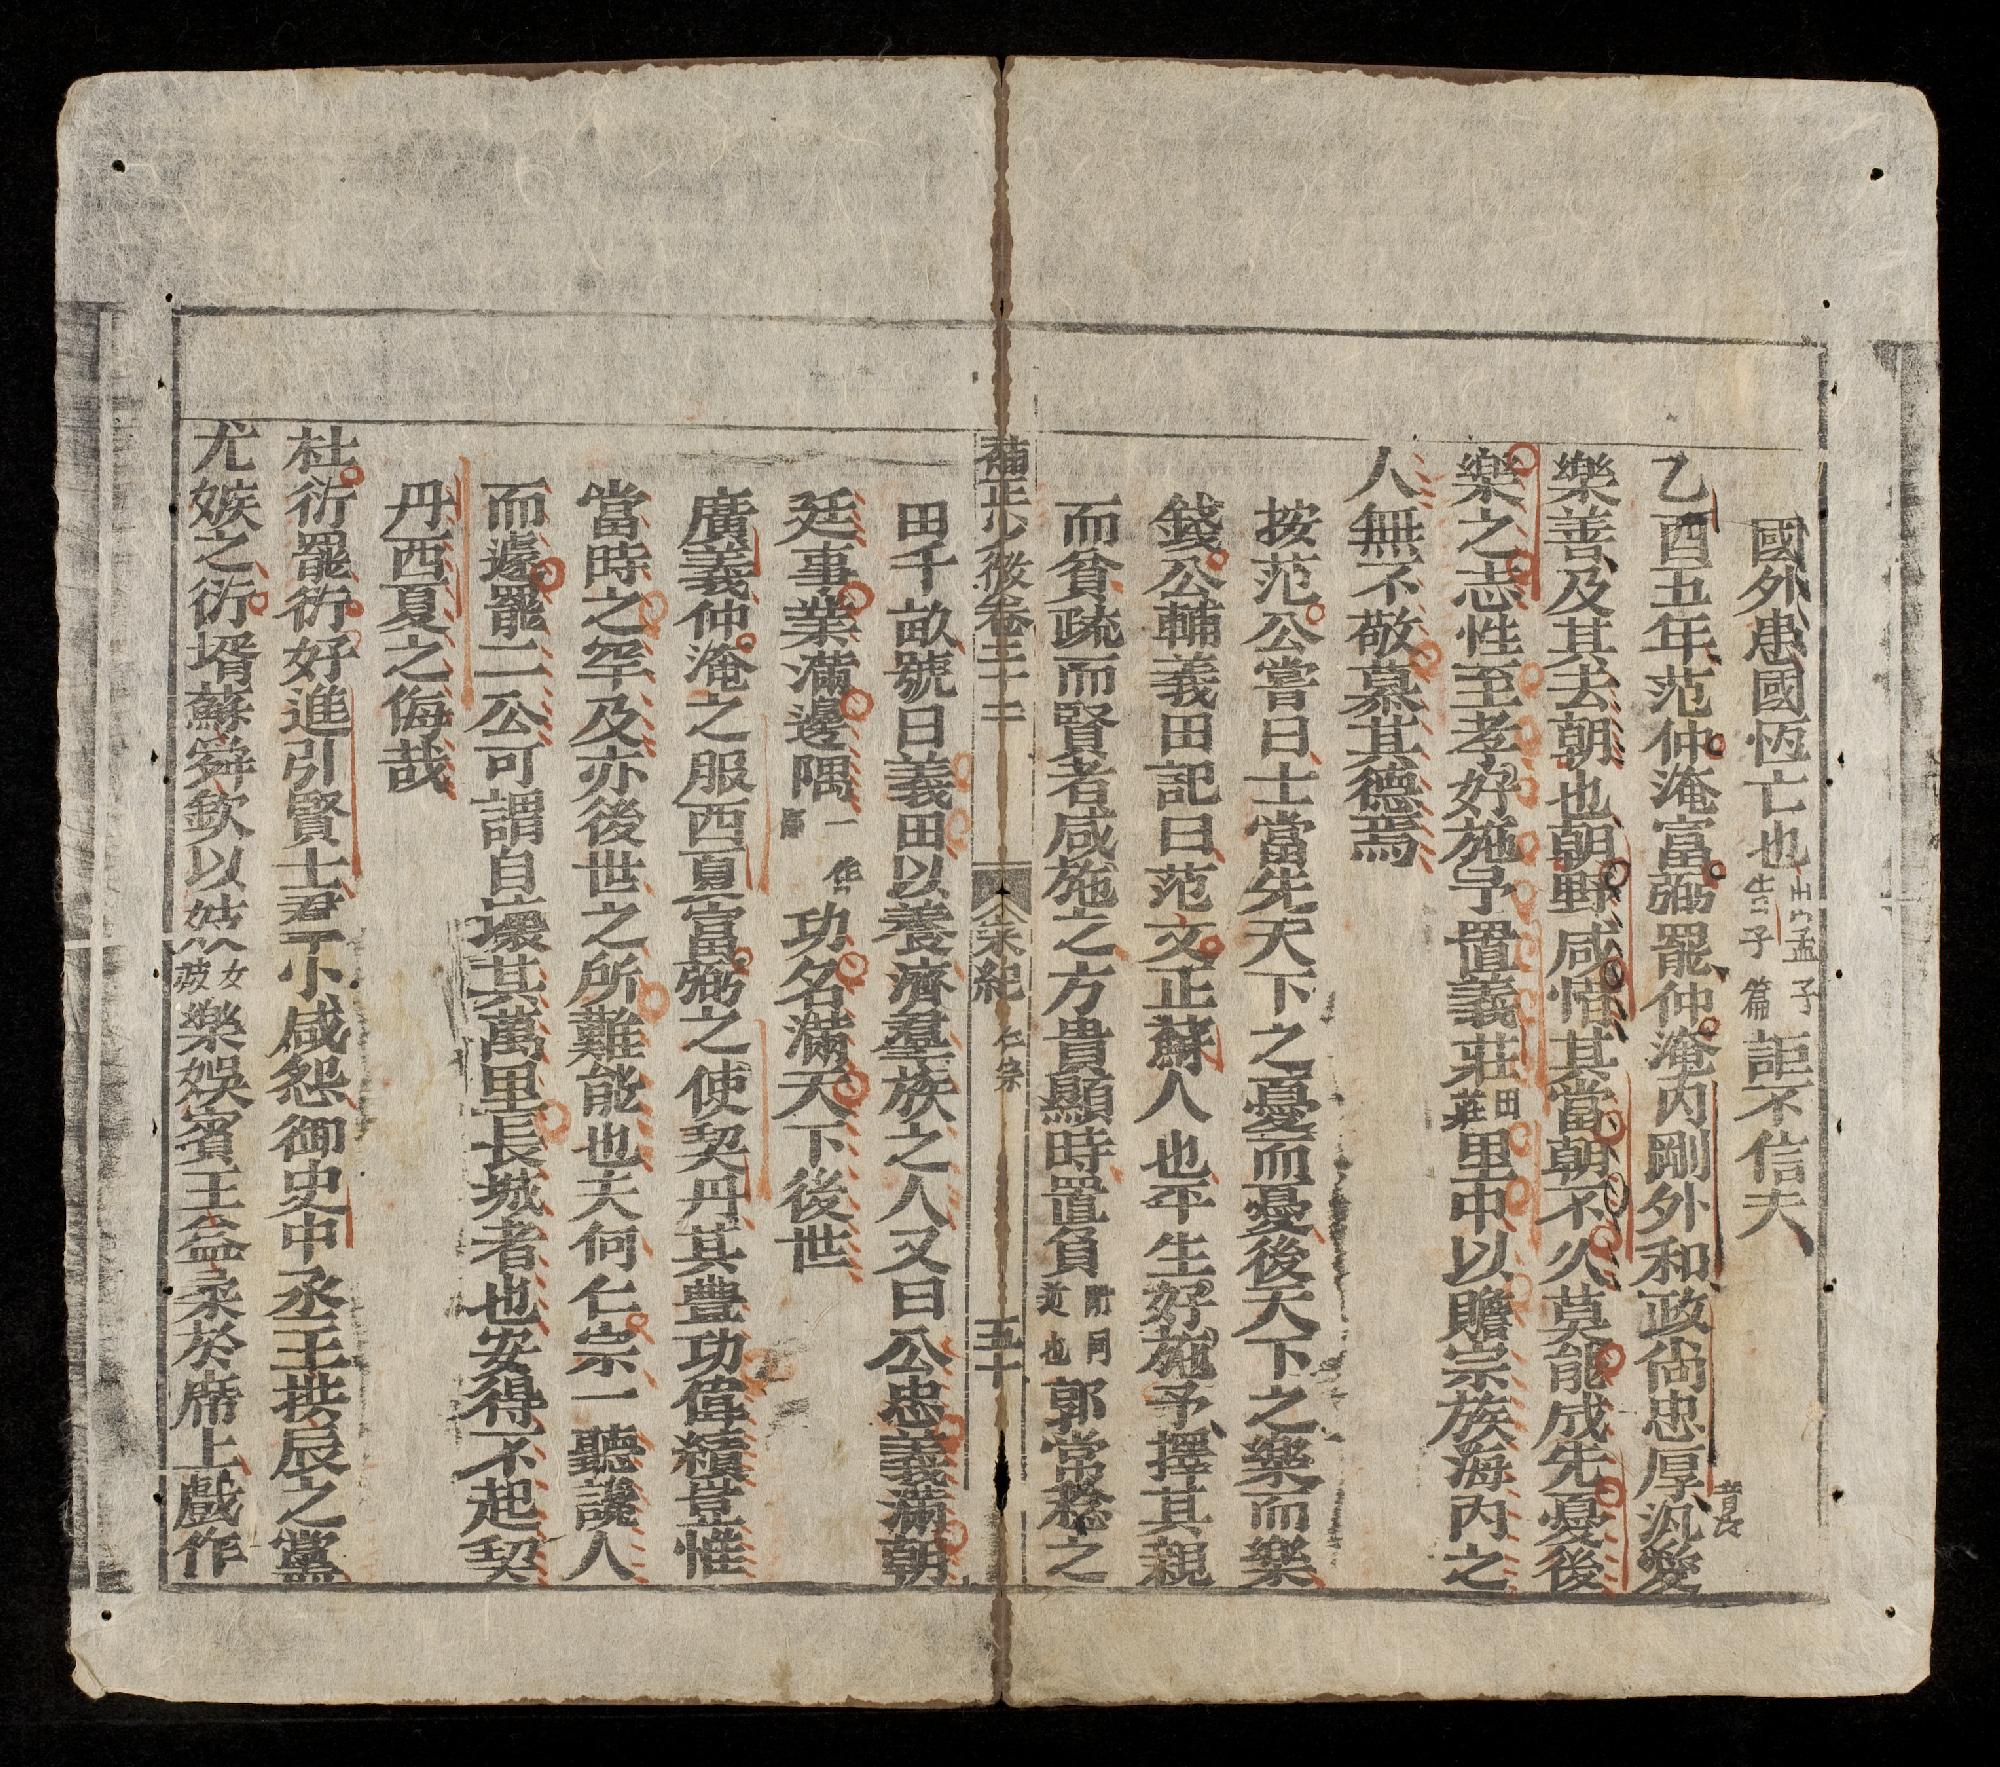 國外患國恆亡也出孟子告子篇詎不信夫
乙酉五年范仲淹富弼罷仲淹内剛外和政尚忠厚汎愛
樂善及其去朝也朝野咸惜其當朝不久莫能成先憂後
樂之志性至孝好施予置義莊田莊里中以贍宗族海内之
人無不敬慕其德焉
按范公嘗曰士當先天下之憂而憂後天下之樂而樂
錢公輔義田記曰范文正蘇人也平生好施予擇其親
而貧疏而賢者咸施之方貴顯時置負附同道也郭常稔之
補正少微卷二十二 宋紀 仁宗 五十
田千畝號曰義田以養濟羣族之人又曰公忠義滿朝
廷事業滿邊隅一作功名滿天下後世
廣義仲淹之服西夏富弼之使契丹其豐功偉績豈惟
當時之罕及亦後世之所難能也夫何仁宗一聽讒人
而遽罷二公可謂自壞其萬里長城者也安得不起契
丹西夏之侮哉
杜衍罷衍好進引賢士君子小咸怨御史中丞王拱辰之黨
尤嫉之衍壻蘇舜欽以妓樂娛賓王益柔於席上戲作